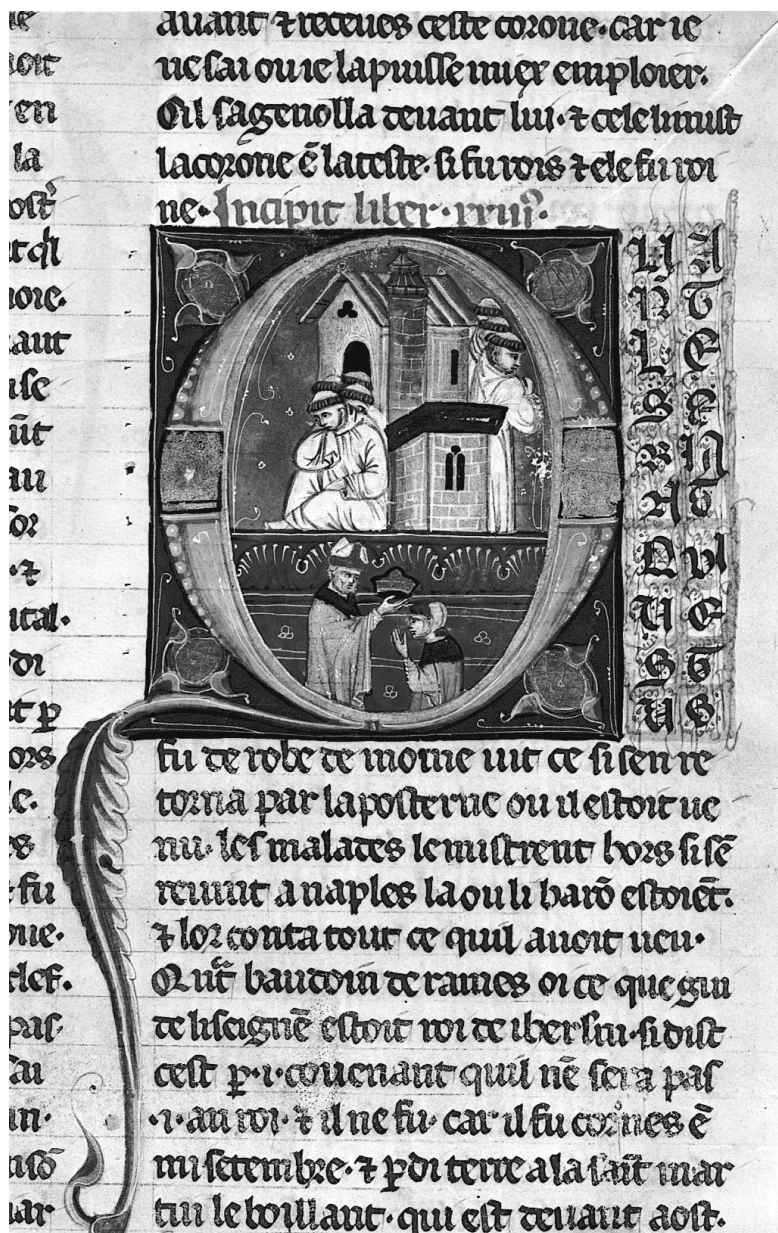 oit
en
la
ost'
t ql
oie.
aut
se
ūt
au
or
. ⁊
ital.
di
t ꝑ
ors
le.
es
fu
oue.
clef.
pas.
sai
un.
nsō
uar
auant ⁊ receues ceste corone. car ie
ne sai ou ie la puisse miex emploier.
Cil sagenolla deuant lui. ⁊ cele li mist
la corone ē la teste. si fu rois ⁊ ele fu roi
ne. Incipit liber. xxiii⁹.
U A
N T
L E
S E
R N
A T
Q UI
U E
S T
U S
fu de robe de moine uit ce si sen re
torna par la posterne ou il estoit ue
nu. les malades le mistrent hors si sē
reuint a naples la ou li barō estoiēt.
⁊ lor conta tout ce quil auoit ueu.
Quāt baudoin de rames oi ce que gui
de liseignē estoit roi de iherslm. si dist
cest ꝑ .i. couenant quil nē sera pas
.i. an roi. ⁊ il ne fu. car il fu cornes ē
mi setembre. ⁊ ꝑdi terre a la saīt mar
tin le boillant. qui est deuant aost.